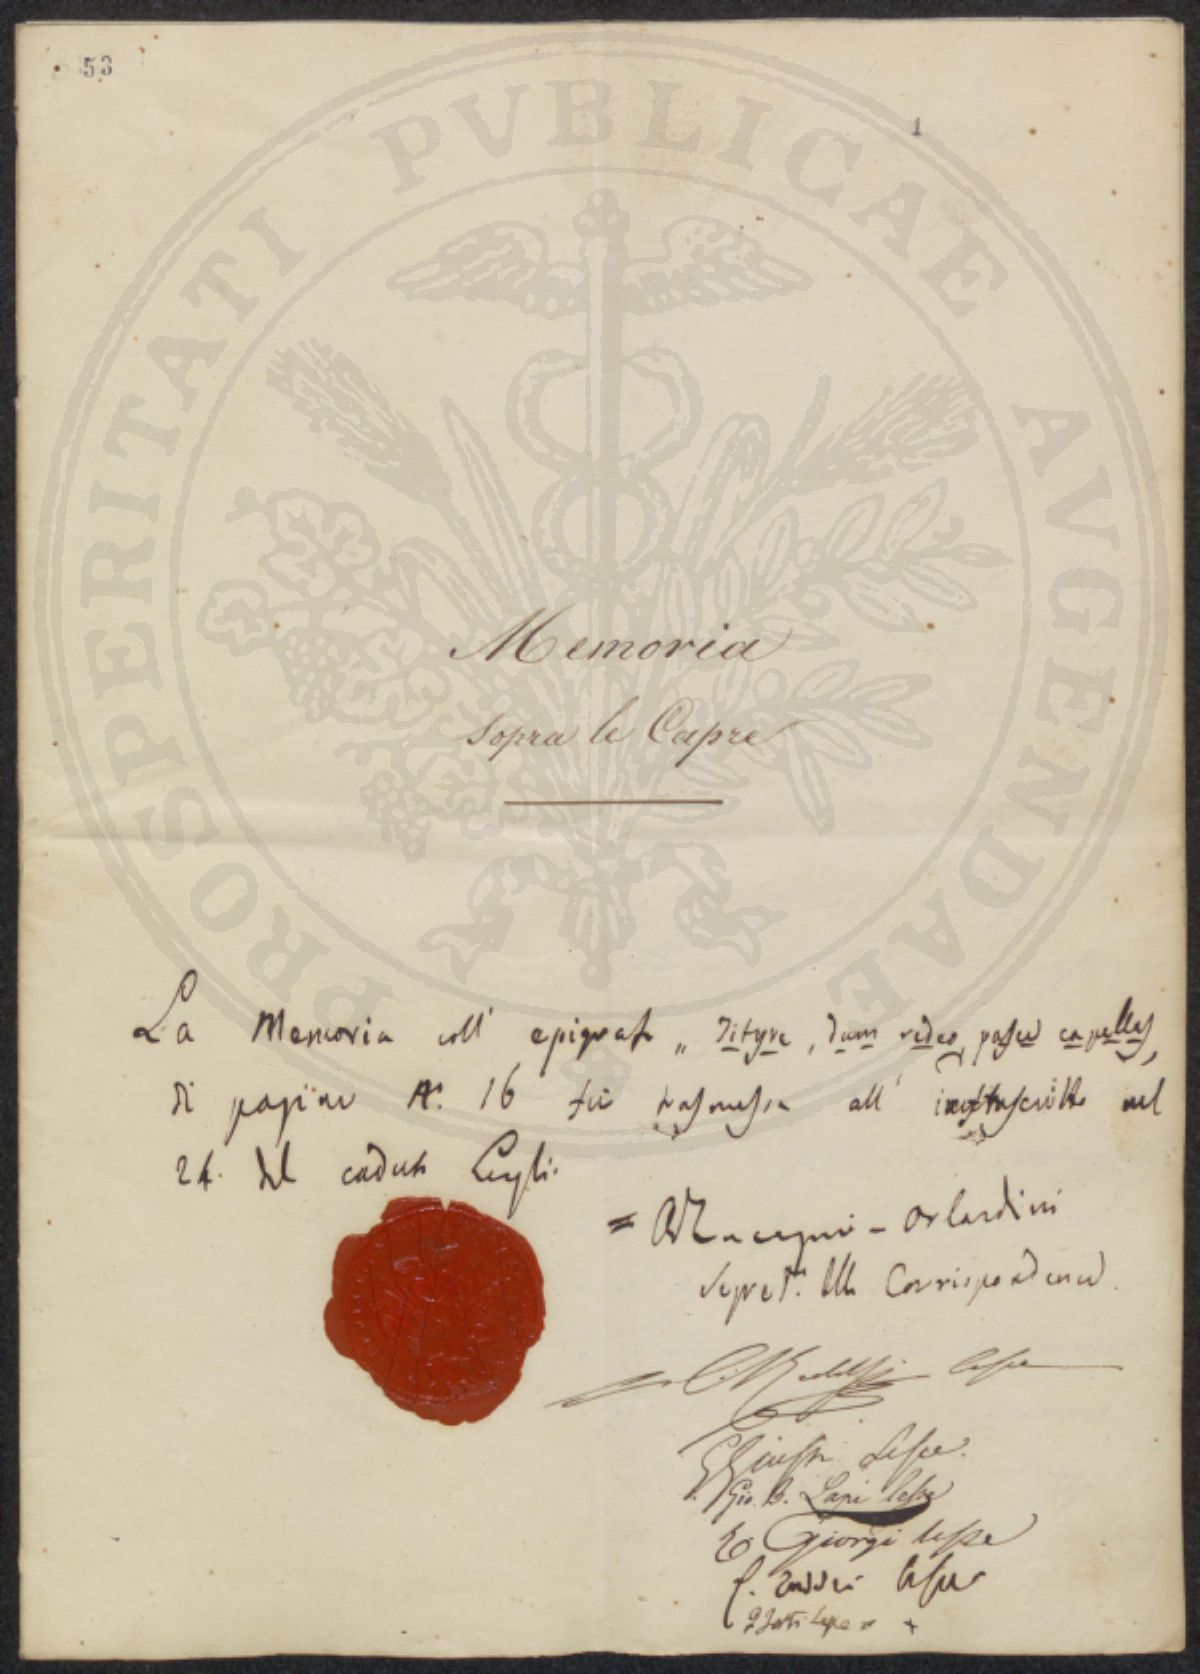 53
1
PROSPERITATI PVBLICAE AVGENDAE
Memoria
sopra le Capre
La Memoria coll' epigrafe „ Tityre, dum redeo, pasce capellas,
di pagine N.° 16 fu trasmessa all' infrascritto nel
24. del caduto Luglio
= Zuccagni - Orlandini
Segret.° della Corrispondenza.
C. Ridolfi
Gio. B. Lapi
E Giorgi